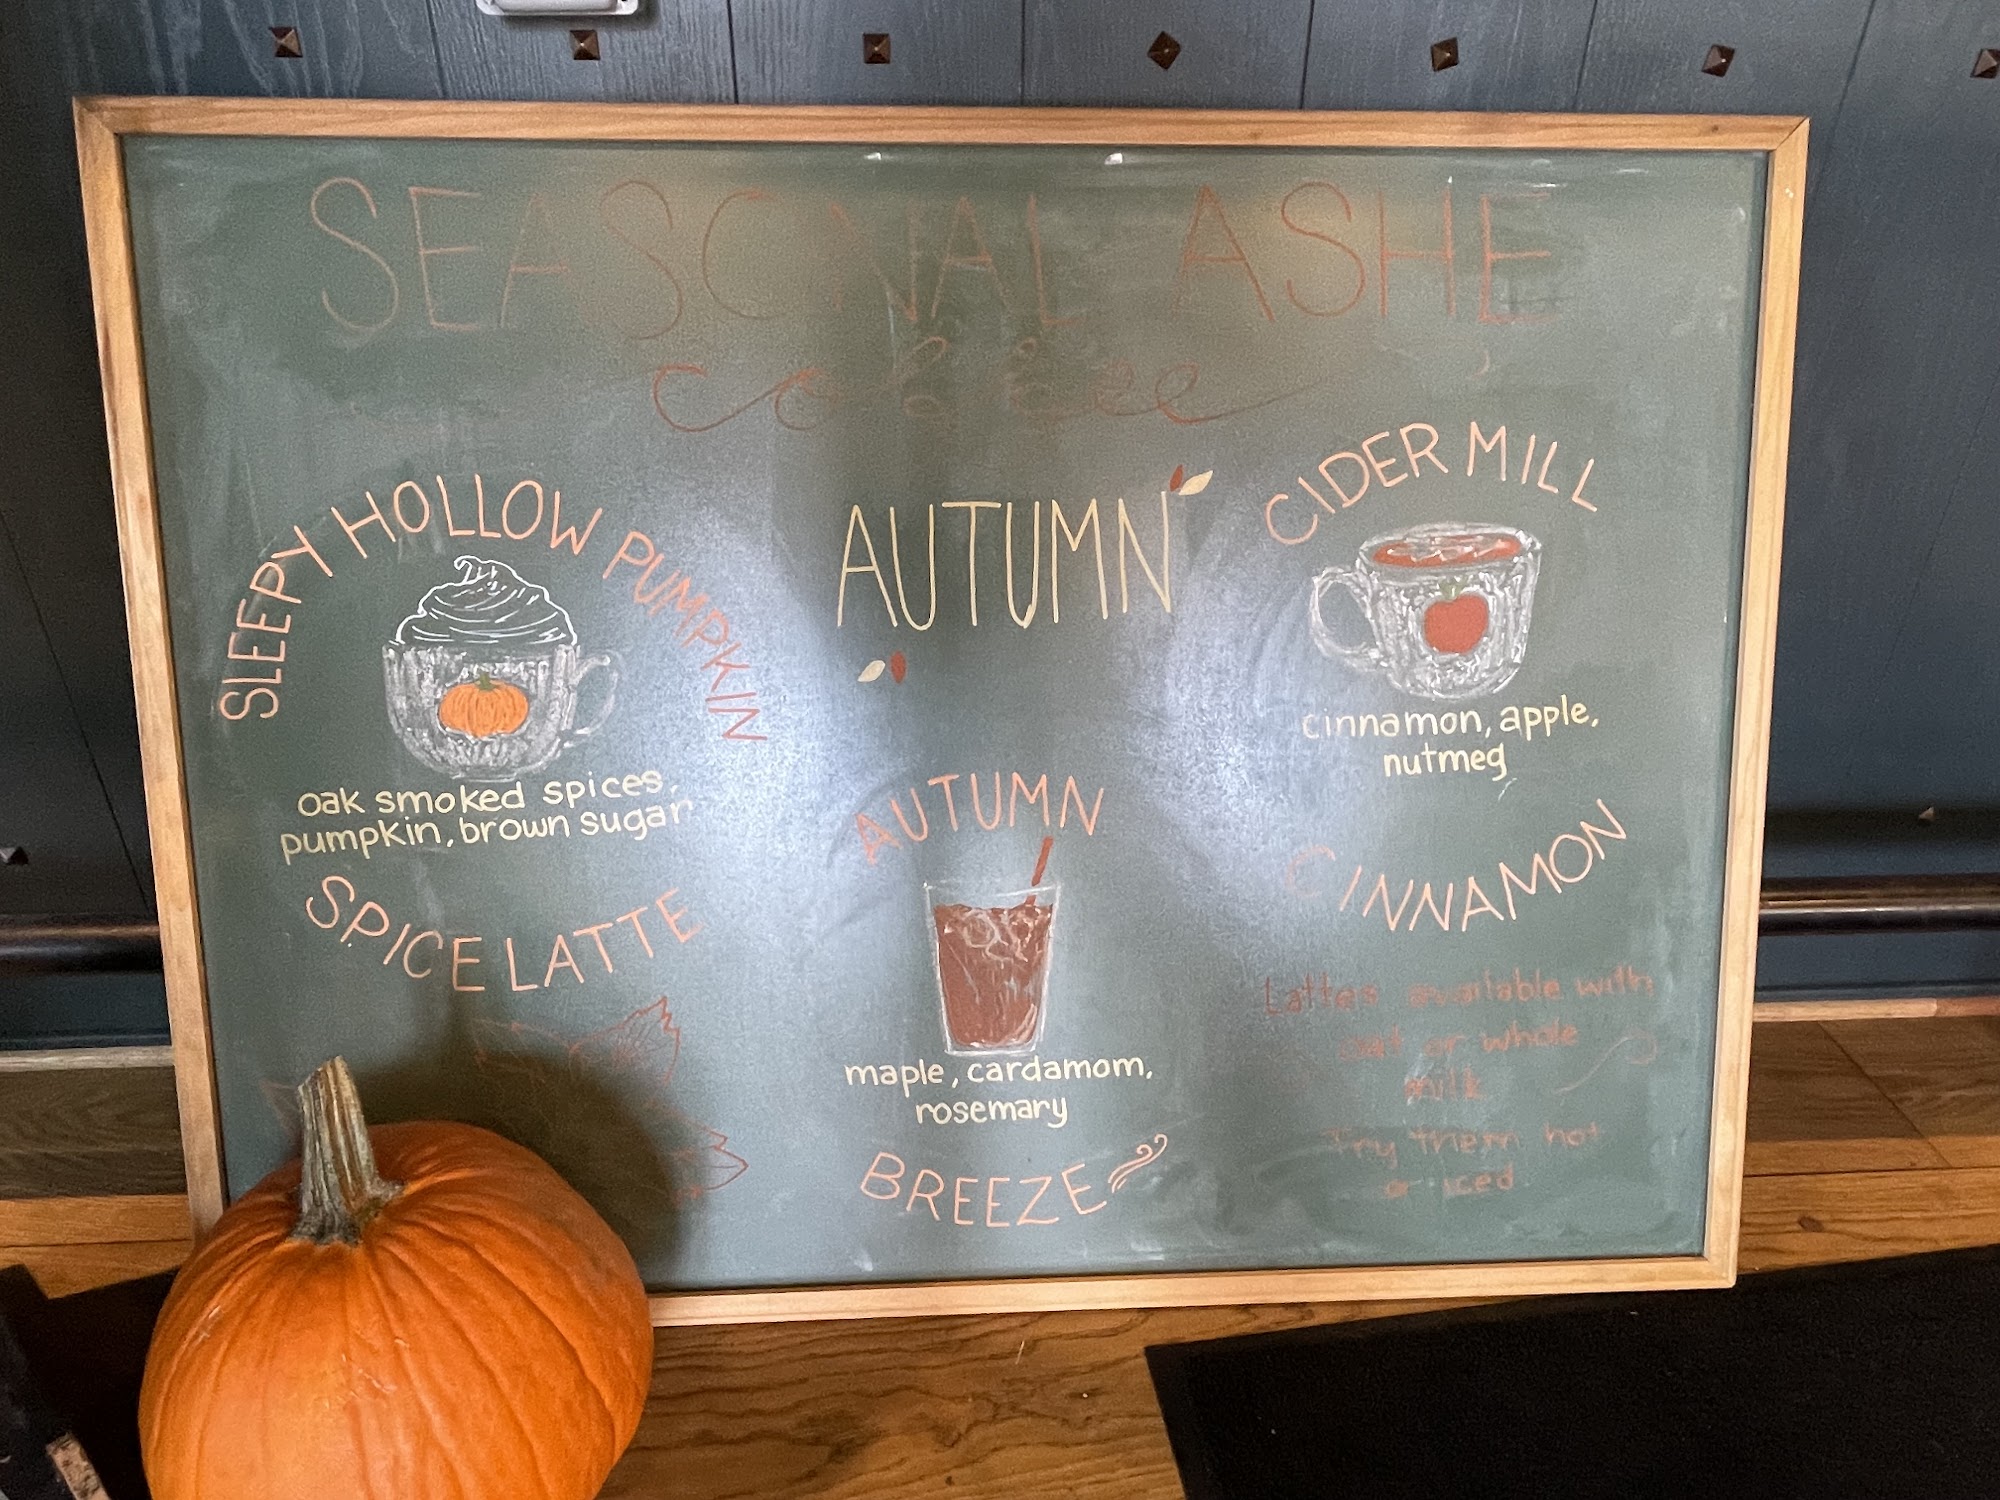 SEASONAL ASHE
coffee
AUTUMN
SLEEPY HOLLOW PUMPKIN
oak smoked spices,
pumpkin, brown sugar
SPICE LATTE
AUTUMN
maple, cardamom,
rosemary
BREEZE
CIDER MILL
cinnamon, apple,
nutmeg
CINNAMON
Lattes available with
oat or whole
milk
Try them hot
or iced